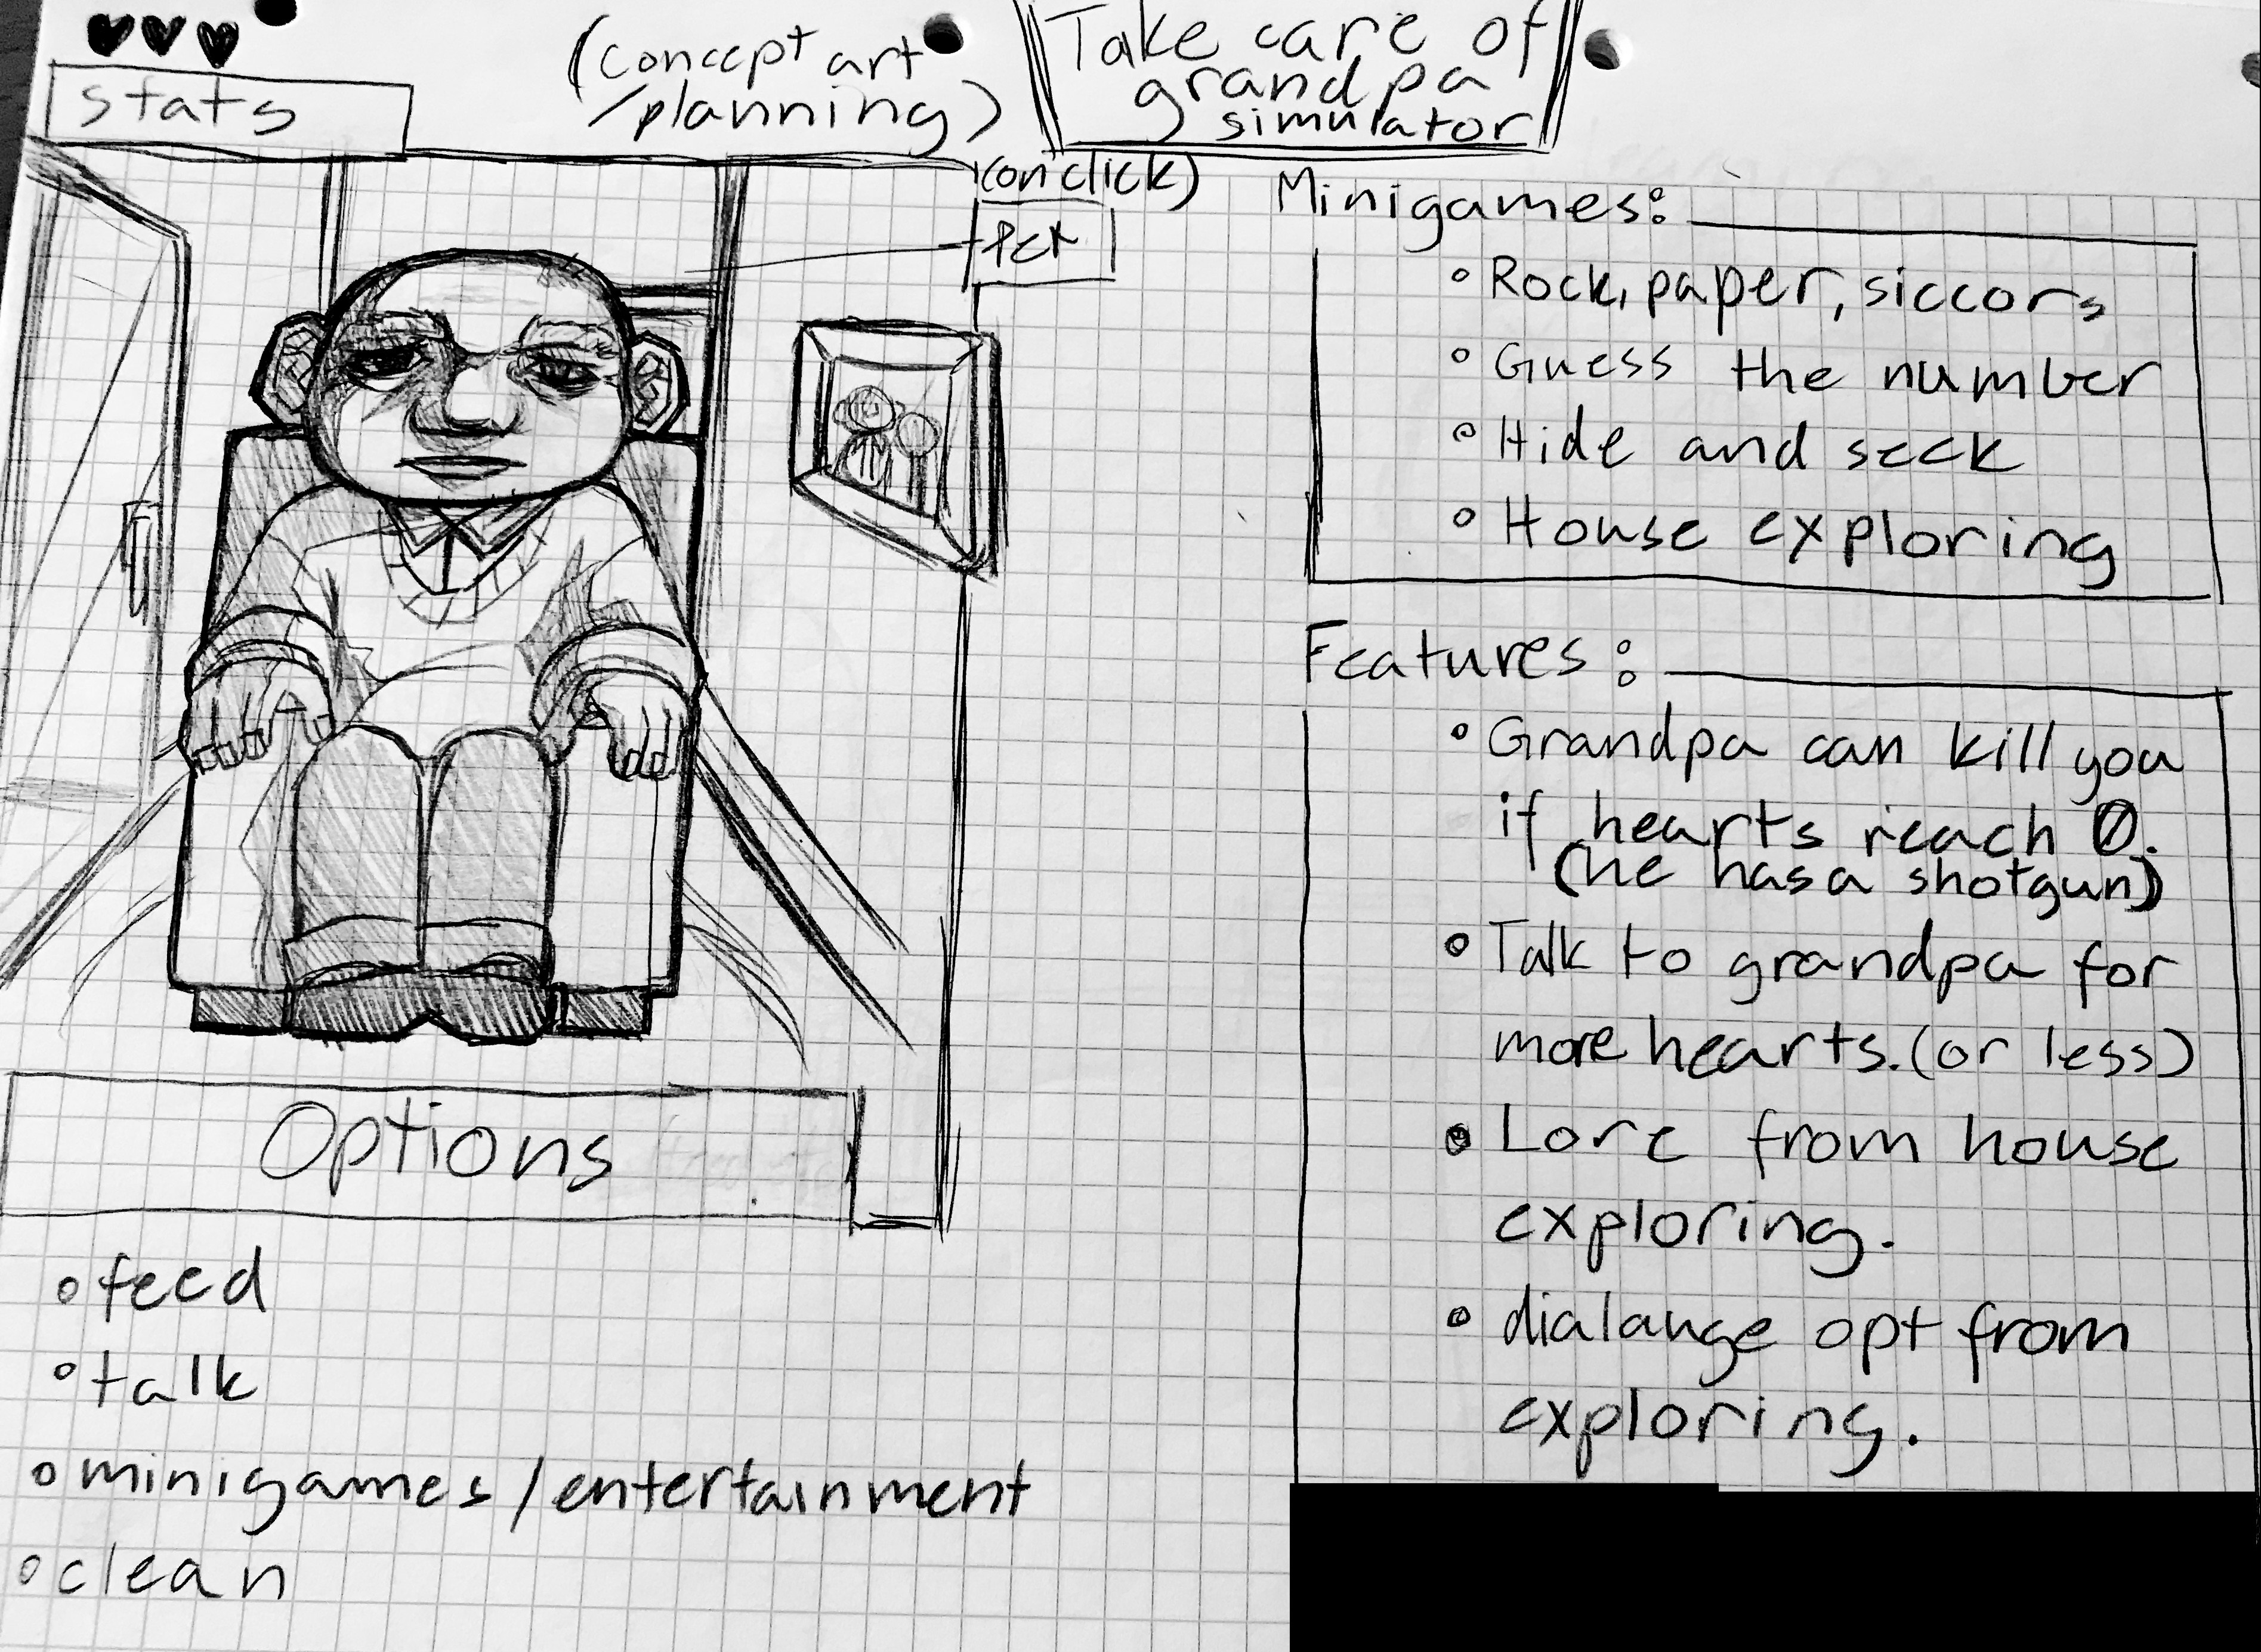 stats
(concept art
/planning)
Take care of
grandpa
simulator
(on click)
Pet
Options
feed
talk
minigames/entertainment
clean
Minigames:
Rock, paper, siccors
Guess the number
Hide and seek
House exploring
Features:
Grandpa can kill you
if hearts reach 0.
(he has a shotgun)
Talk to grandpa for
more hearts. (or less)
Lore from house
exploring.
dialauge opt from
exploring.